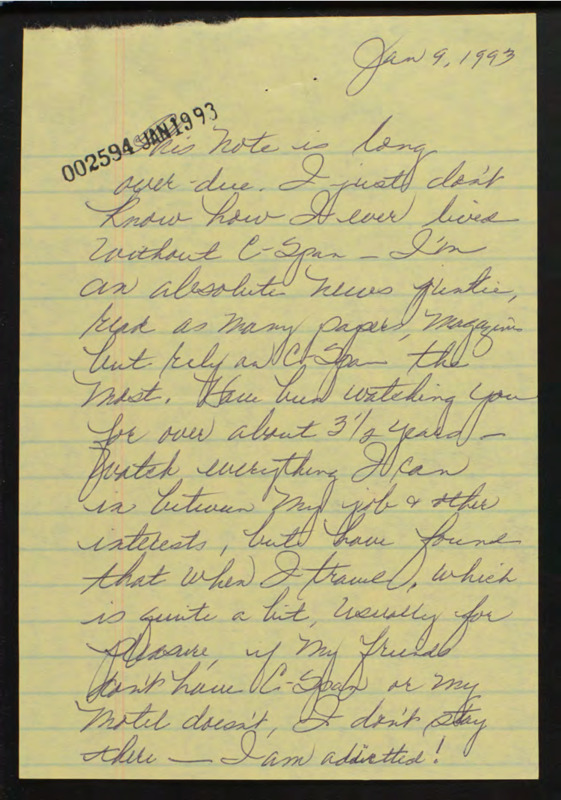 Jan 9, 1993
002594 JAN1993
This note is long
over-due. I just don't
know how I ever lived
without C-Span – I'm
an absolute news juntie,
read as many papers, magazines
but rely on C-Span the
most. Have been watching you
for over about 3 1/2 years –
Watch everything I can
in between my job & other
interests, but have found
that when I travel, which
is quite a bit, usually for
pleasure, if my friends
don't have C-Span or my
motel doesn't, I don't stay
there — I am addictted!